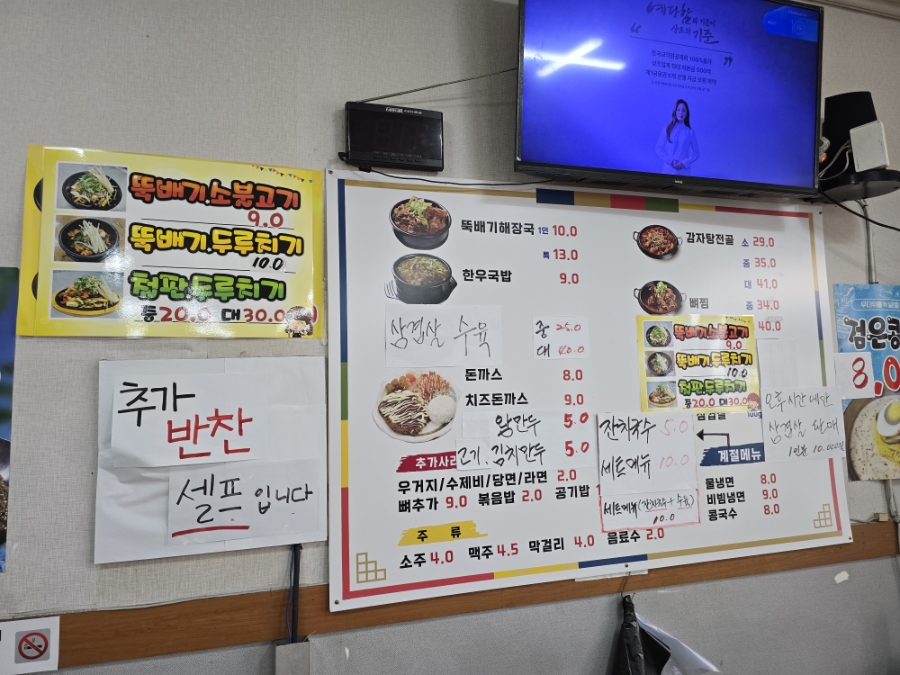 예다함
상조의 기준
뚝배기.소불고기
9.0
뚝배기.두루치기
10.0
철판.두루치기
중20.0 대30.0
추가
반찬
셀프 입니다
뚝배기해장국 1인 10.0
특 13.0
한우국밥 9.0
삼겹살 수육 중 25.0
대 40.0
돈까스 8.0
치즈돈까스 9.0
왕만두 5.0
고기.김치만두 5.0
추가사리
우거지/수제비/당면/라면 2.0
뼈추가 9.0 볶음밥 2.0 공기밥
주 류
소주 4.0 맥주 4.5 막걸리 4.0 음료수 2.0
감자탕전골 소 29.0
중 35.0
대 41.0
뼈찜 중 34.0
40.0
뚝배기.소불고기
9.0
뚝배기.두루치기
10.0
철판.두루치기
중20.0 대30.0
잔치국수 5.0
세트메뉴 10.0
세트메뉴(잔치국수+수육)
10.0
오후시간대만
삼겹살 판매
1인분 10.000원
계절메뉴
물냉면 8.0
비빔냉면 9.0
콩국수 8.0
검은콩
8.0